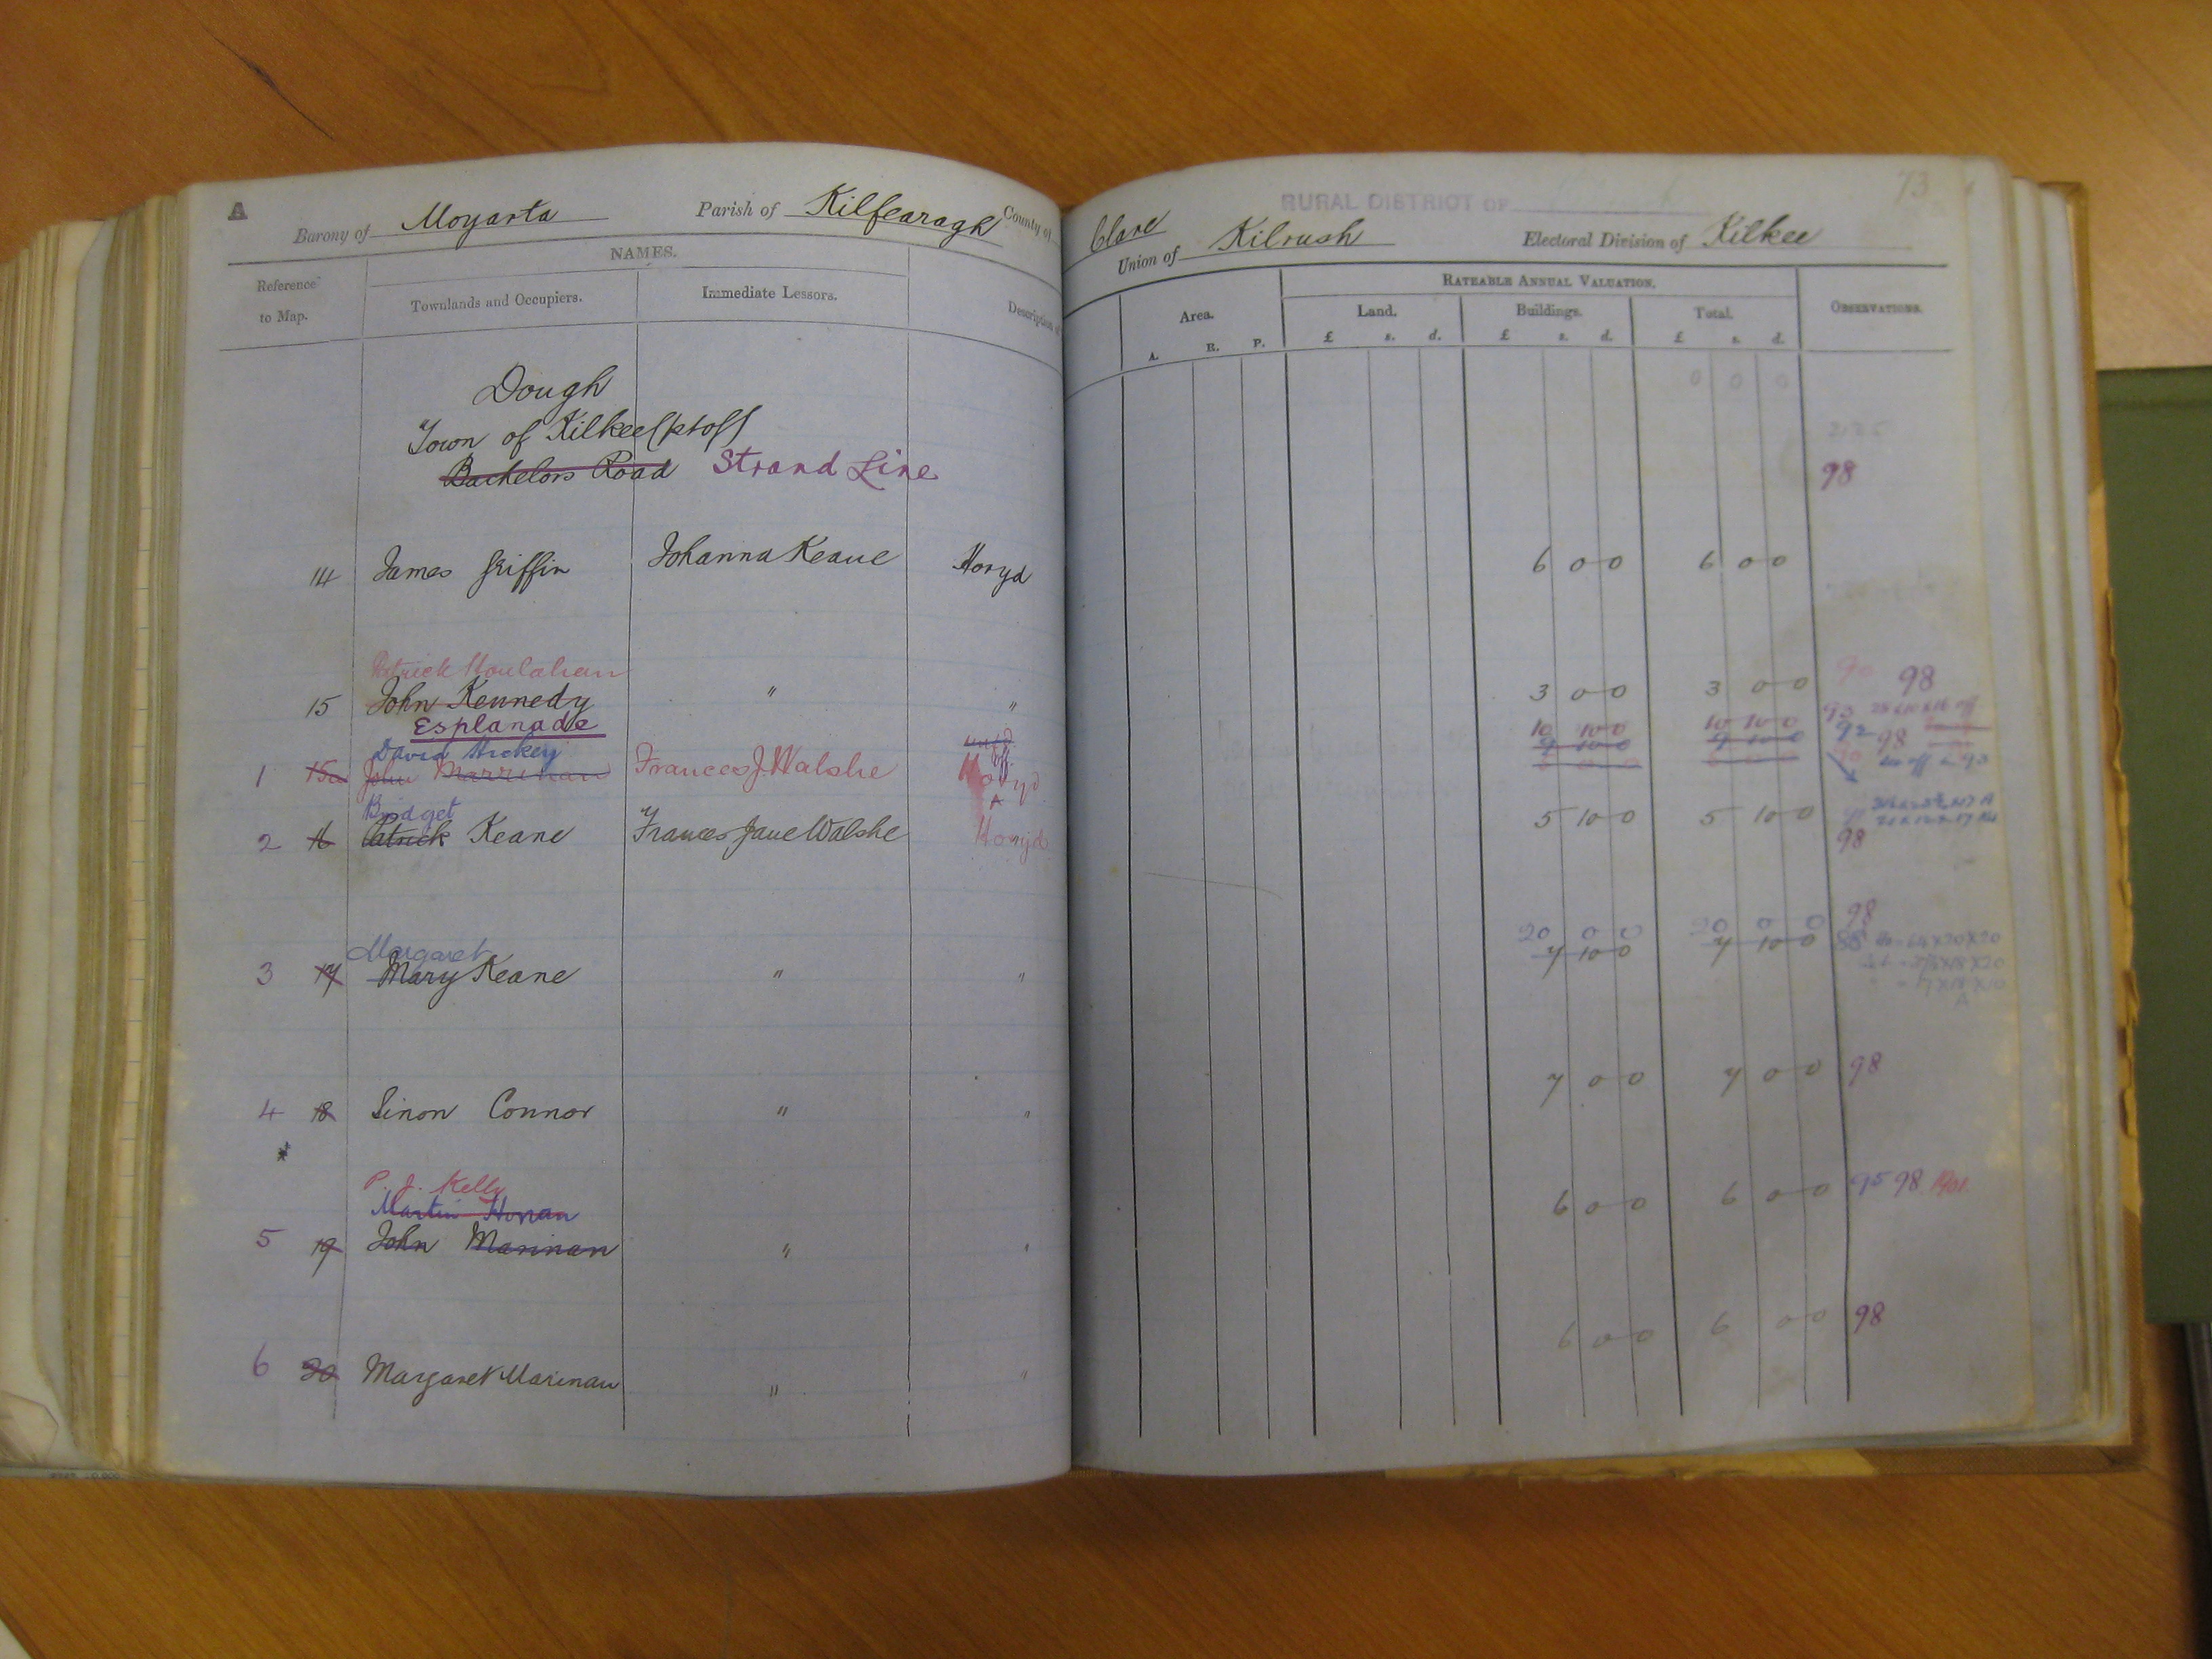 A
Barony of Moyarta Parish of Kilfearagh County of Clare
RURAL DISTRICT OF
73
Union of Kilrush Electoral Division of Kilkee
Reference to Map.
NAMES.
Townlands and Occupiers.
Immediate Lessors.
Description of
Area.
A. R. P.
RATEABLE ANNUAL VALUATION.
Land. Buildings. Total.
£ s. d. £ s. d. £ s. d.
OBSERVATIONS.
Dough
0 0 0
Town of Kilkee (pt of)
Bachelors Road Strand Line 98
14 James Griffin Johanna Keane Ho.yd 6 0 0 6 0 0
Patrick Houlahan
15 John Kennedy " " 3 0 0 3 0 0 90 98
Esplanade 10 10 0 10 10 0 93
David Hickey 9 10 0 9 10 0 92 98
1 15a John Marrinan Frances J. Walshe Ho.yd
Bridget
2 16 Patrick Keane Frances Jane Walshe Ho.yd 5 10 0 5 10 0 98
Margaret 20 0 0 20 0 0 98
3 17 Mary Keane " " 7 10 0 7 10 0 88
4 18 Sinon Connor " " 7 0 0 7 0 0 98
P. J. Kelly
Martin Honan
5 19 John Marinan " " 6 0 0 6 0 0 95 98 1901
6 20 Margaret Marinan " " 6 0 0 6 0 0 98